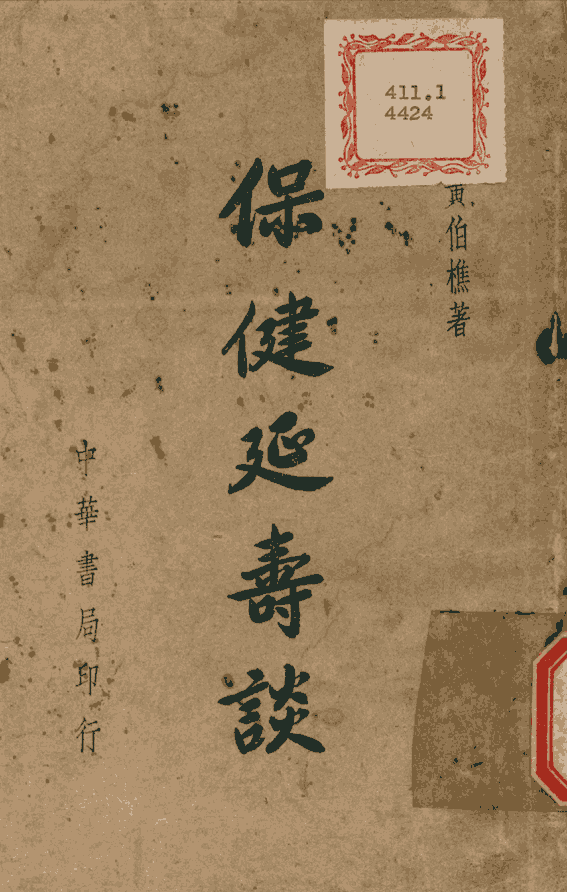 411.1
4424
黃伯樵著
保健延壽談
中華書局印行